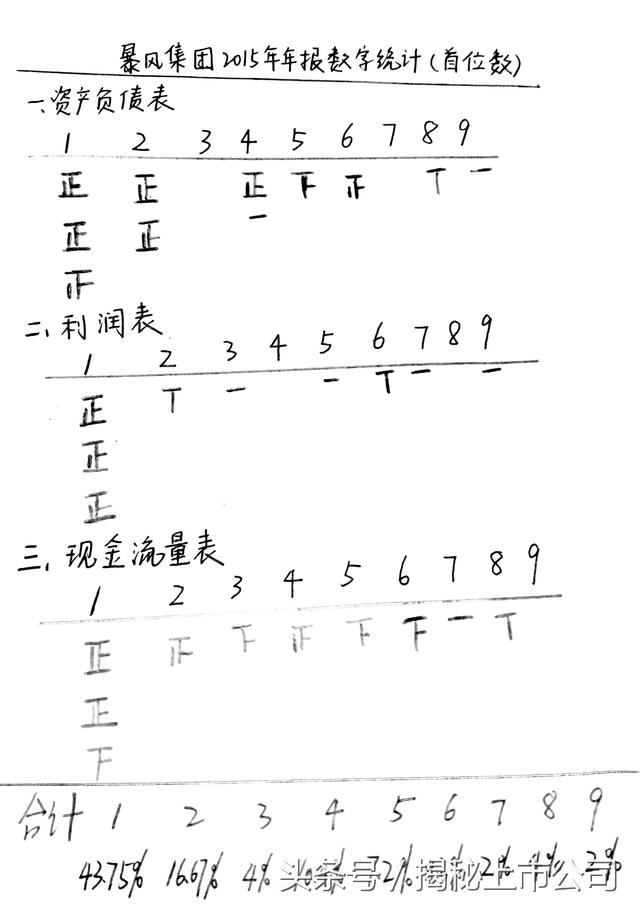 暴风集团2015年年报数字统计(首位数)
一.资产负债表
1 2 3 4 5 6 7 8 9
正 正 正 下 正 T 一
正 正 一
正
二、利润表
1 2 3 4 5 6 7 8 9
正 T 一 一 T 一 一
正
正
三、现金流量表
1 2 3 4 5 6 7 8 9
正 正 下 正 下 下 一 T
正
下
合计 1 2 3 4 5 6 7 8 9
43.75% 16.67% 4% 2% 4% 2%
头条号/揭秘上市公司